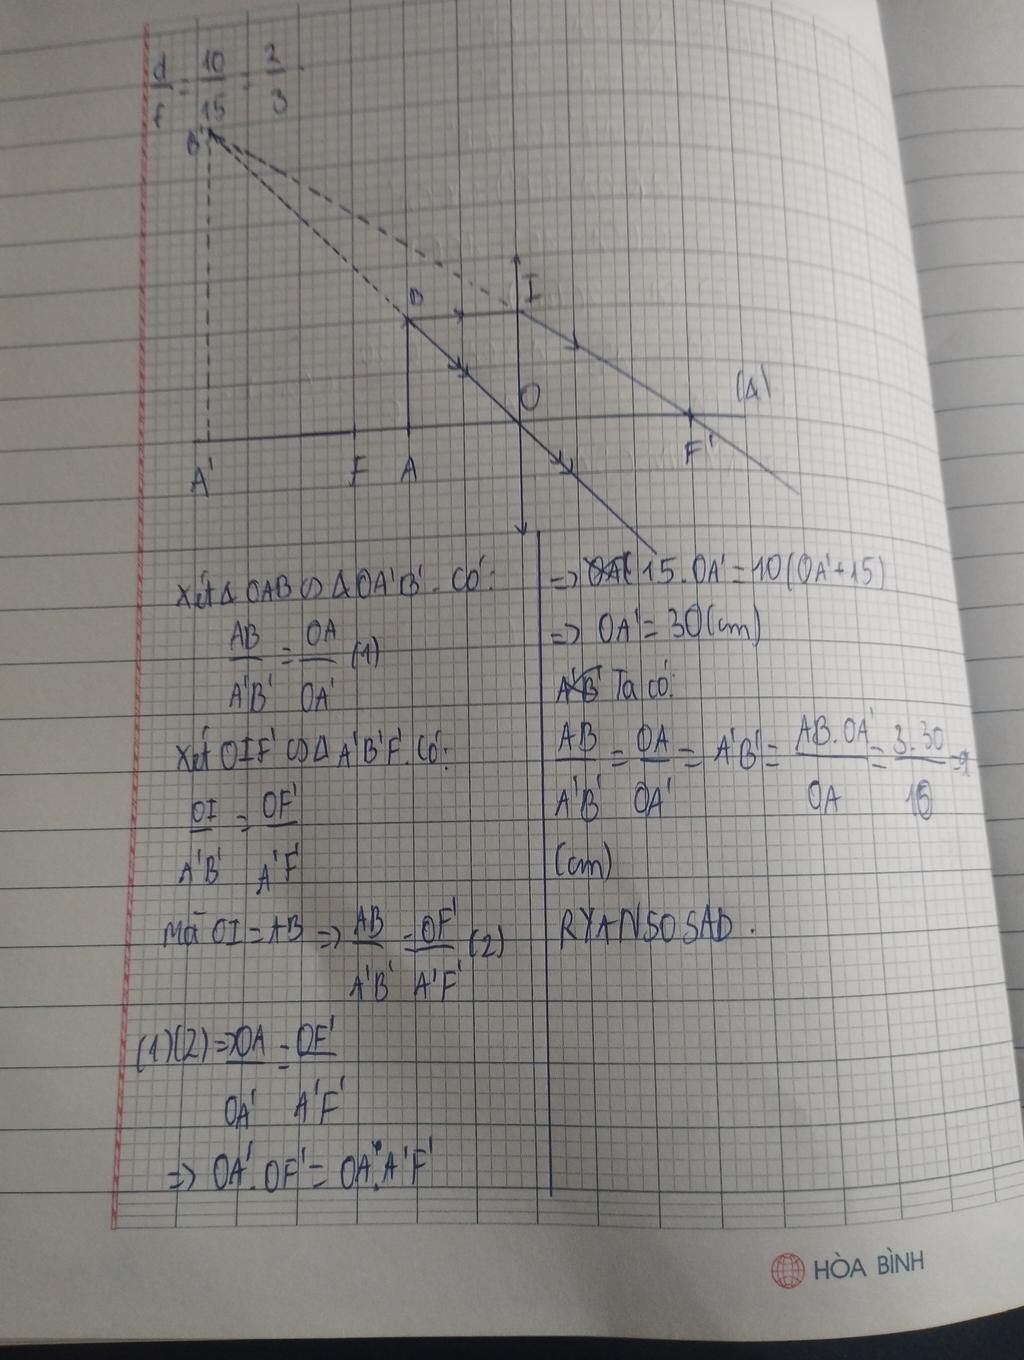 d/f = 10/15 = 2/3
B'
B
I
O
(Δ)
A'
F
A
F'
Xét Δ OAB ∽ Δ OA'B'. Có:
AB/A'B' = OA/OA' (1)
Xét OIF' ∽ Δ A'B'F'. Có:
OI/A'B' = OF'/A'F'
mà OI = AB => AB/A'B' = OF'/A'F' (2)
(1)(2) => OA/OA' = OF'/A'F'
=> OA'. OF' = OA. A'F'
=> 15. OA' = 10(OA' + 15)
=> OA' = 30(cm)
Ta có:
AB/A'B' = OA/OA' = A'B' = AB. OA'/OA = 3. 30/
(cm)
RYANSOSAD.
HÒA BÌNH